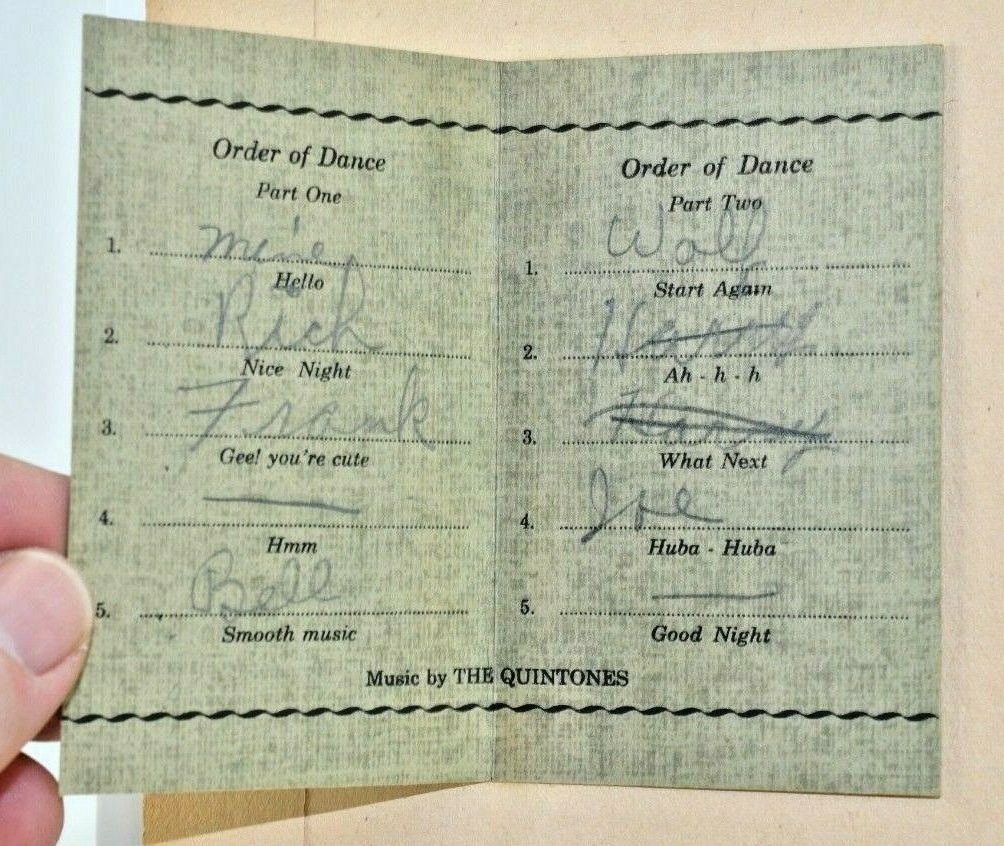 Order of Dance
Part One
1. Mine
Hello
2. Rich
Nice Night
3. Frank
Gee! you're cute
4.
Hmm
5. Bell
Smooth music
Order of Dance
Part Two
1. Wall
Start Again
2.
Ah - h - h
3.
What Next
4. Joe
Huba - Huba
5.
Good Night
Music by THE QUINTONES